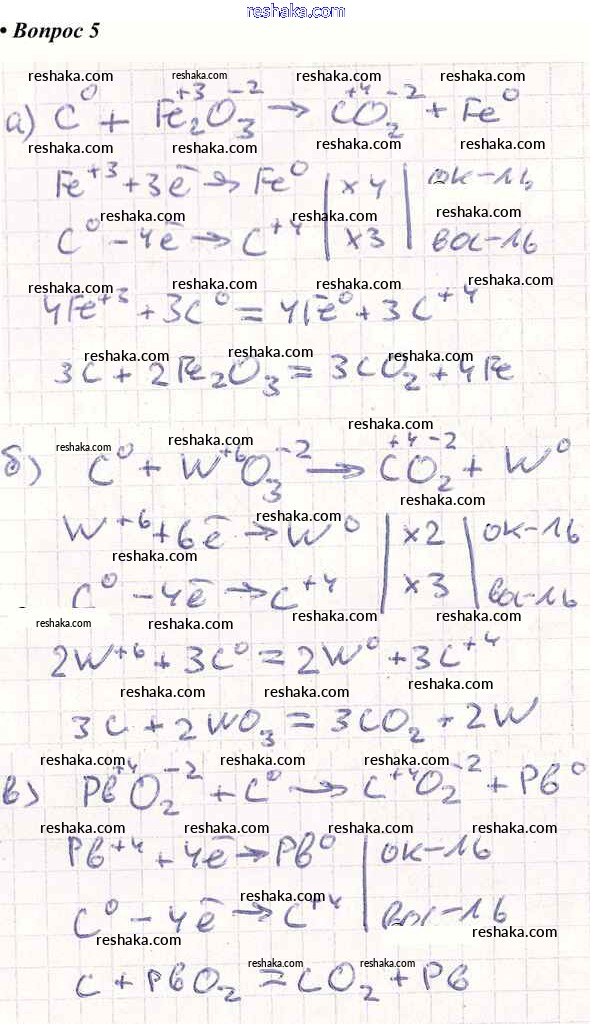 reshaka.com
• Вопрос 5
reshaka.com reshaka.com reshaka.com reshaka.com
а) C⁰ + Fe₂⁺³O₃⁻² → C⁺⁴O₂⁻² + Fe⁰
reshaka.com reshaka.com reshaka.com reshaka.com
Fe⁺³ + 3ē → Fe⁰ | ×4 | ок-ль
reshaka.com reshaka.com
C⁰ - 4ē → C⁺⁴ | ×3 | вос-ль
reshaka.com reshaka.com reshaka.com reshaka.com
4Fe⁺³ + 3C⁰ = 4Fe⁰ + 3C⁺⁴
reshaka.com reshaka.com reshaka.com
3C + 2Fe₂O₃ = 3CO₂ + 4Fe
reshaka.com reshaka.com reshaka.com
б) C⁰ + W⁺⁶O₃⁻² → C⁺⁴O₂⁻² + W⁰
reshaka.com
reshaka.com
W⁺⁶ + 6ē → W⁰ | ×2 | ок-ль
reshaka.com
C⁰ - 4ē → C⁺⁴ | ×3 | вос-ль
reshaka.com reshaka.com reshaka.com reshaka.com
2W⁺⁶ + 3C⁰ = 2W⁰ + 3C⁺⁴
reshaka.com reshaka.com reshaka.com
3C + 2WO₃ = 3CO₂ + 2W
reshaka.com reshaka.com reshaka.com reshaka.com
в) Pb⁺⁴O₂⁻² + C⁰ → C⁺⁴O₂⁻² + Pb⁰
reshaka.com reshaka.com reshaka.com reshaka.com
Pb⁺⁴ + 4ē → Pb⁰ | ок-ль
reshaka.com
C⁰ - 4ē → C⁺⁴ | вос-ль
reshaka.com reshaka.com
reshaka.com reshaka.com
C + PbO₂ = CO₂ + Pb